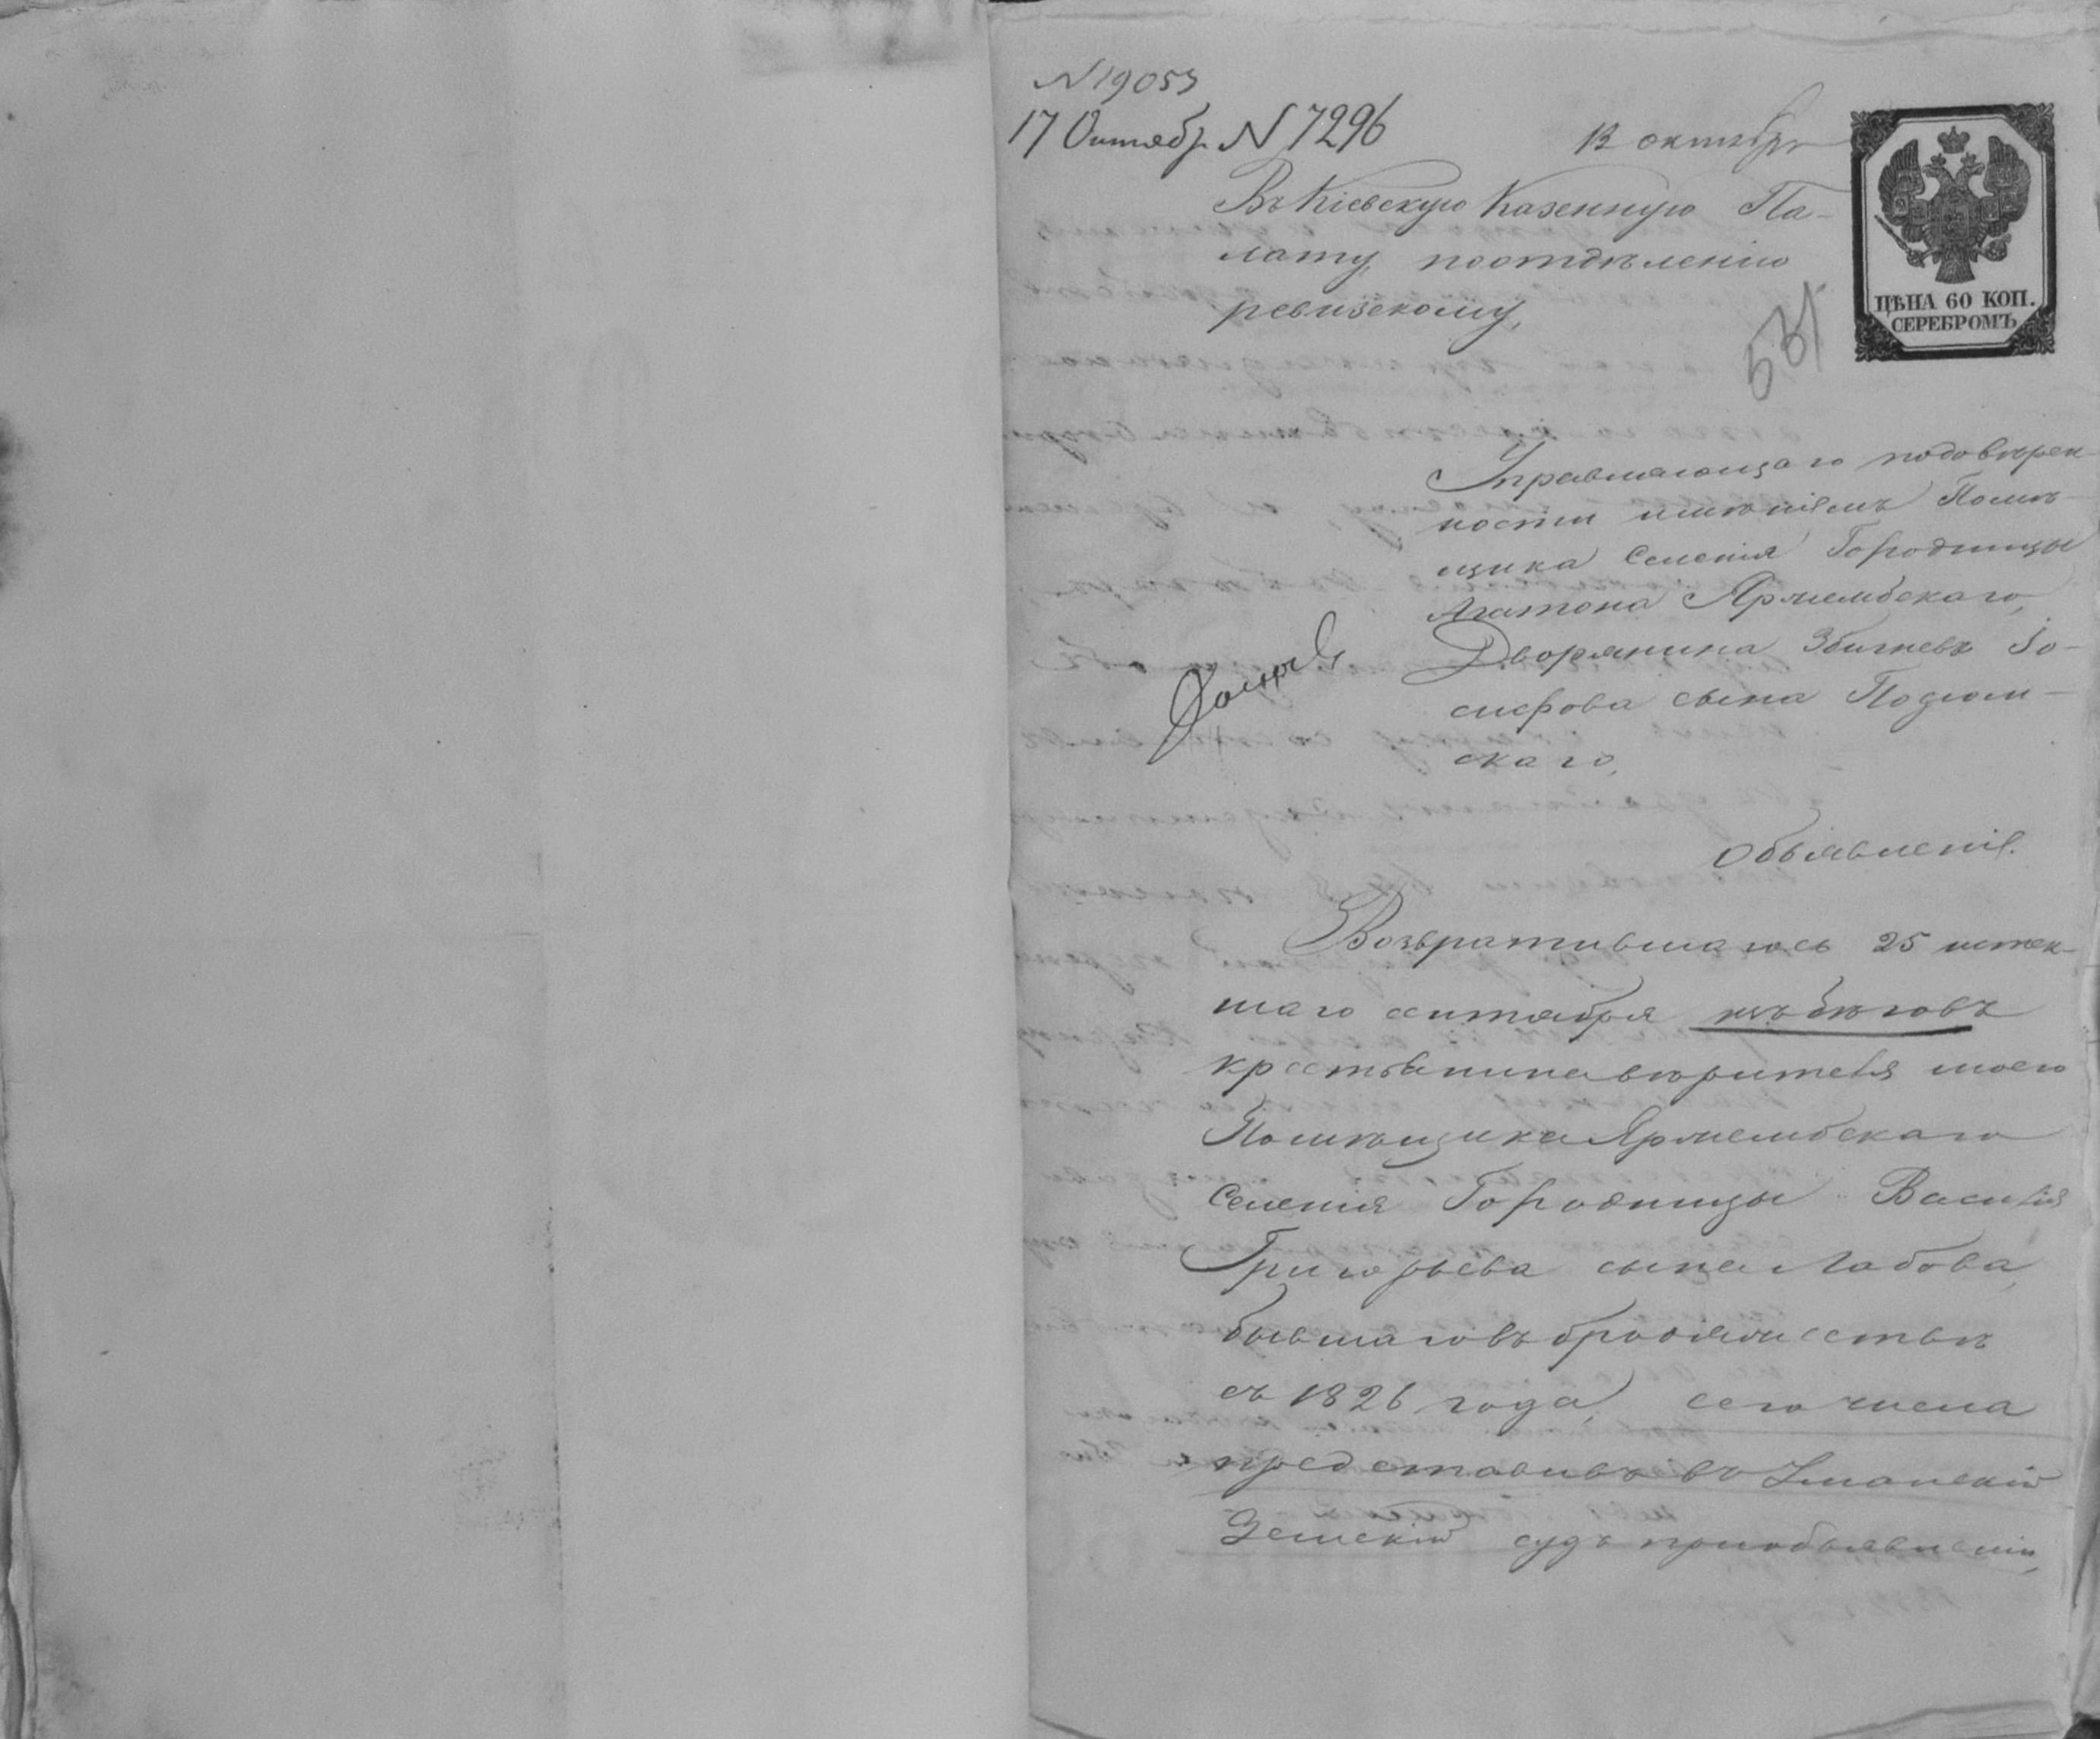 N 19053
17 Октябр N 7296
12 октября
Въ Кіевскую Казенную Па-
лату, по отдѣленію
ревизскому,
ЦѢНА 60 КОП.
СЕРЕБРОМЪ
531
Управляющаго по довѣрен-
ности имѣніемъ Помѣ-
щика Селенія Городницы
Агатона Ярмембскаго,
Дворянина Збигнева Іо-
сифова сына
скаго,
Объявленіе.
Возвратившагось 25 истек-
шаго сентября изъ бѣговъ
крестьянина вѣрителя моего
Помѣщика Ярмембскаго
Селенія Городницы Василія
Григорьева сына Лабова,
бывшаго въ бродяжествѣ
съ 1826 года, сего числа
представивъ въ Уманскій
Земскій судъ при объявленіи,